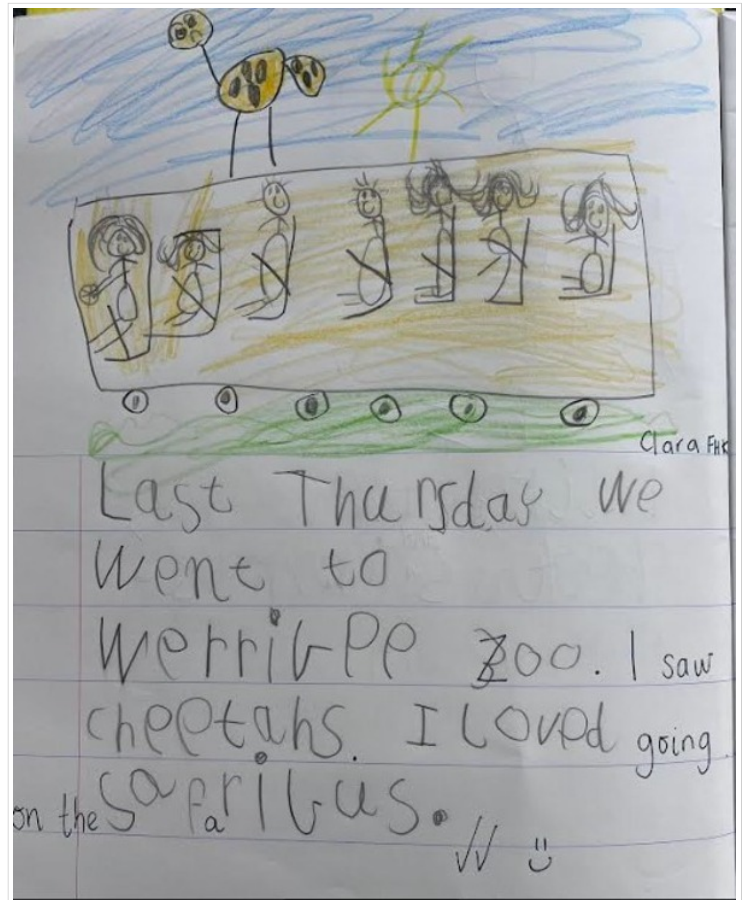 Clara FHK
Last Thursday we
went to
Werribee Zoo. I saw
cheetahs. I loved going
on the safaribus.